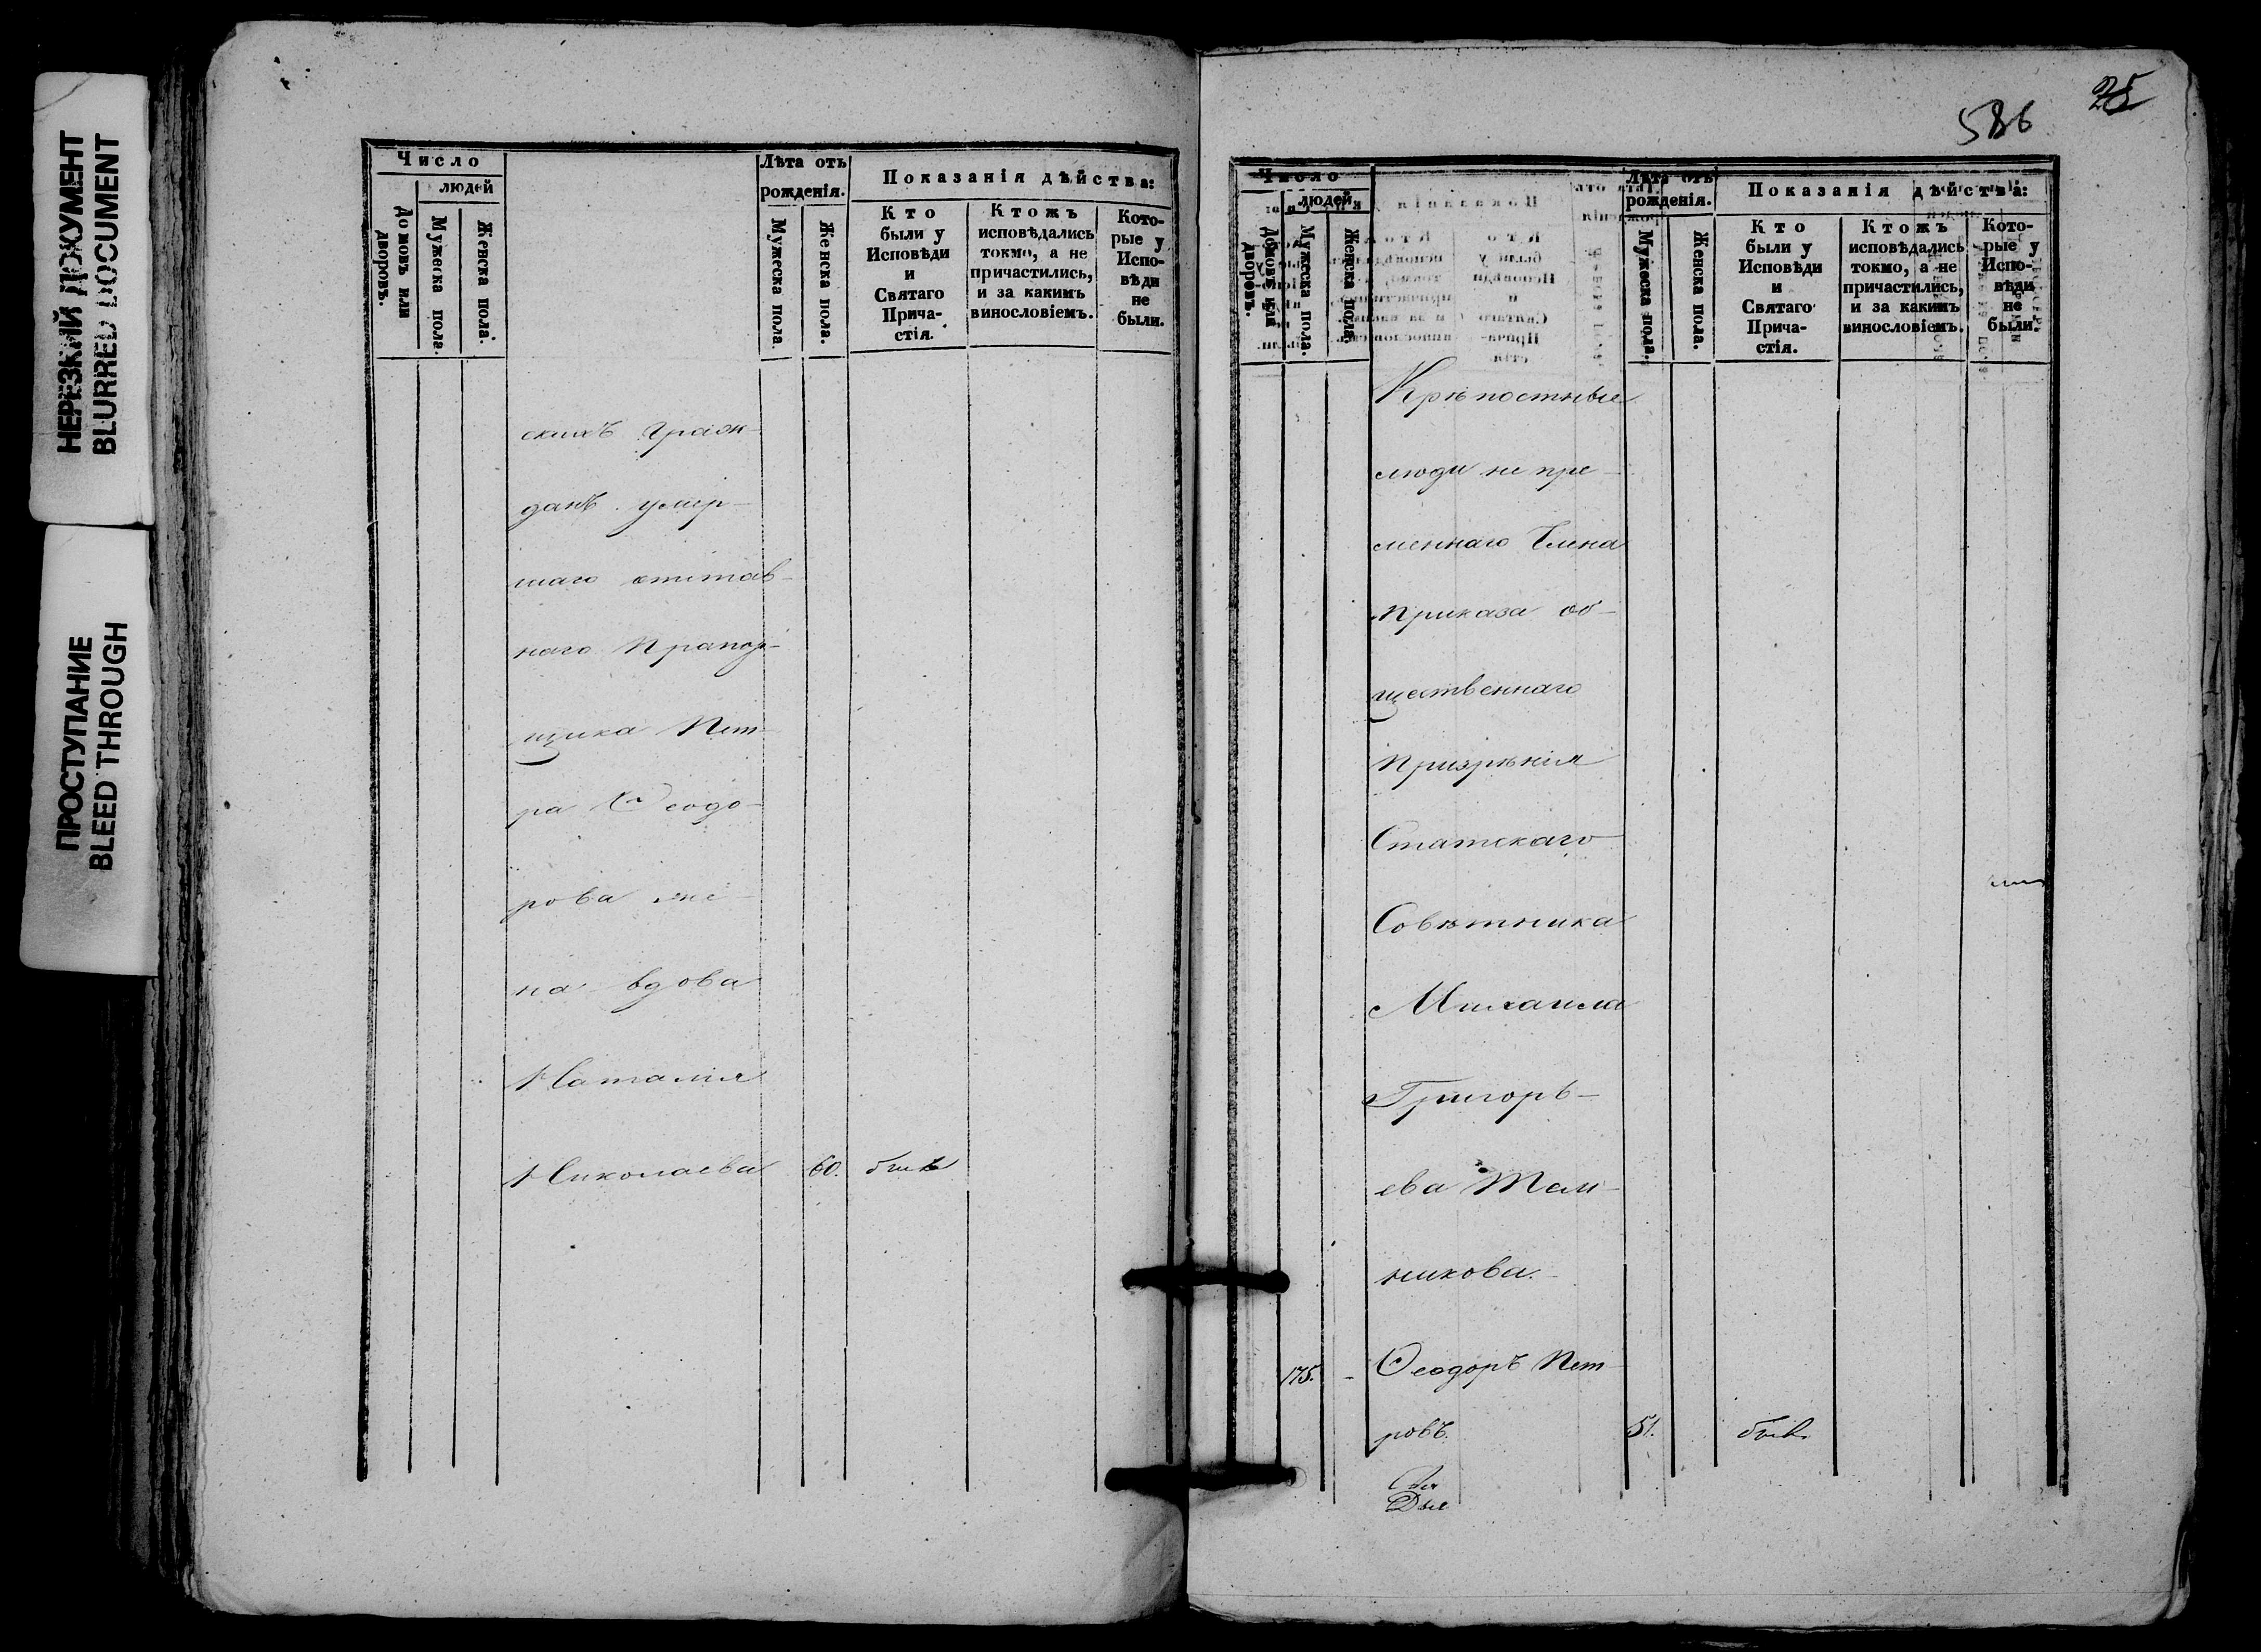 НЕРЕЗКИЙ ДОКУМЕНТ
BLURRED DOCUMENT
ПРОСТУПАНИЕ
BLEED THROUGH
Число
людей
Домовъ или дворовъ.
Мужеска пола.
Женска пола.
Лѣта отъ
рожденія.
Мужеска пола.
Женска пола.
Показанія дѣйства:
Кто
были у
Исповѣди
и
Святаго
Прича-
стія.
Ктожъ
исповѣдались
токмо, а не
причастились,
и за какимъ
винословіемъ.
Кото-
рые у
Испо-
вѣди
не
были.
скихъ граж-
данъ умер-
шаго отстав-
наго Прапор-
щика Пет-
ра Ѳеодо-
рова же-
на вдова
Наталия
Николаева 60. была
586
25
Число
людей
Домовъ или дворовъ.
Мужеска пола.
Женска пола.
Лѣта отъ
рожденія.
Мужеска пола.
Женска пола.
Показанія дѣйства:
Кто
были у
Исповѣди
и
Святаго
Прича-
стія.
Ктожъ
исповѣдались
токмо, а не
причастились,
и за какимъ
винословіемъ.
Кото-
рые у
Испо-
вѣди
не
были.
Крѣпостные
люди не пре-
меннаго Члена
Приказа об-
щественнаго
Призрѣнія
Статскаго
Совѣтника
Михаила
Григорь-
ева
никова.
175. - Ѳеодоръ Пет-
ровъ. 51. былъ